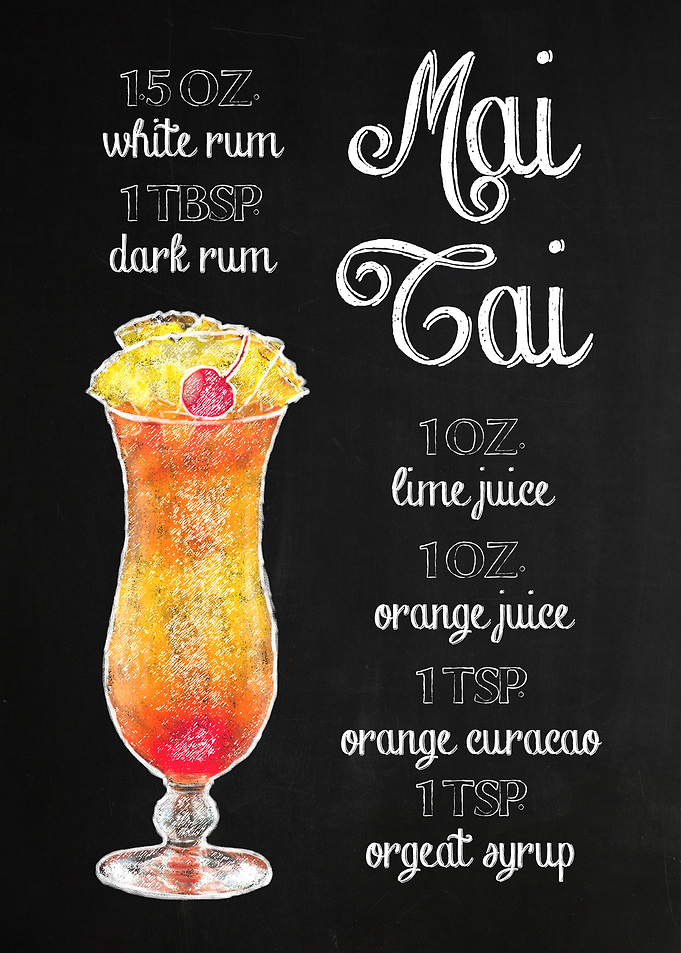 Mai
Tai
1.5 OZ.
white rum
1 TBSP.
dark rum
1 OZ.
lime juice
1 OZ.
orange juice
1 TSP.
orange curacao
1 TSP.
orgeat syrup